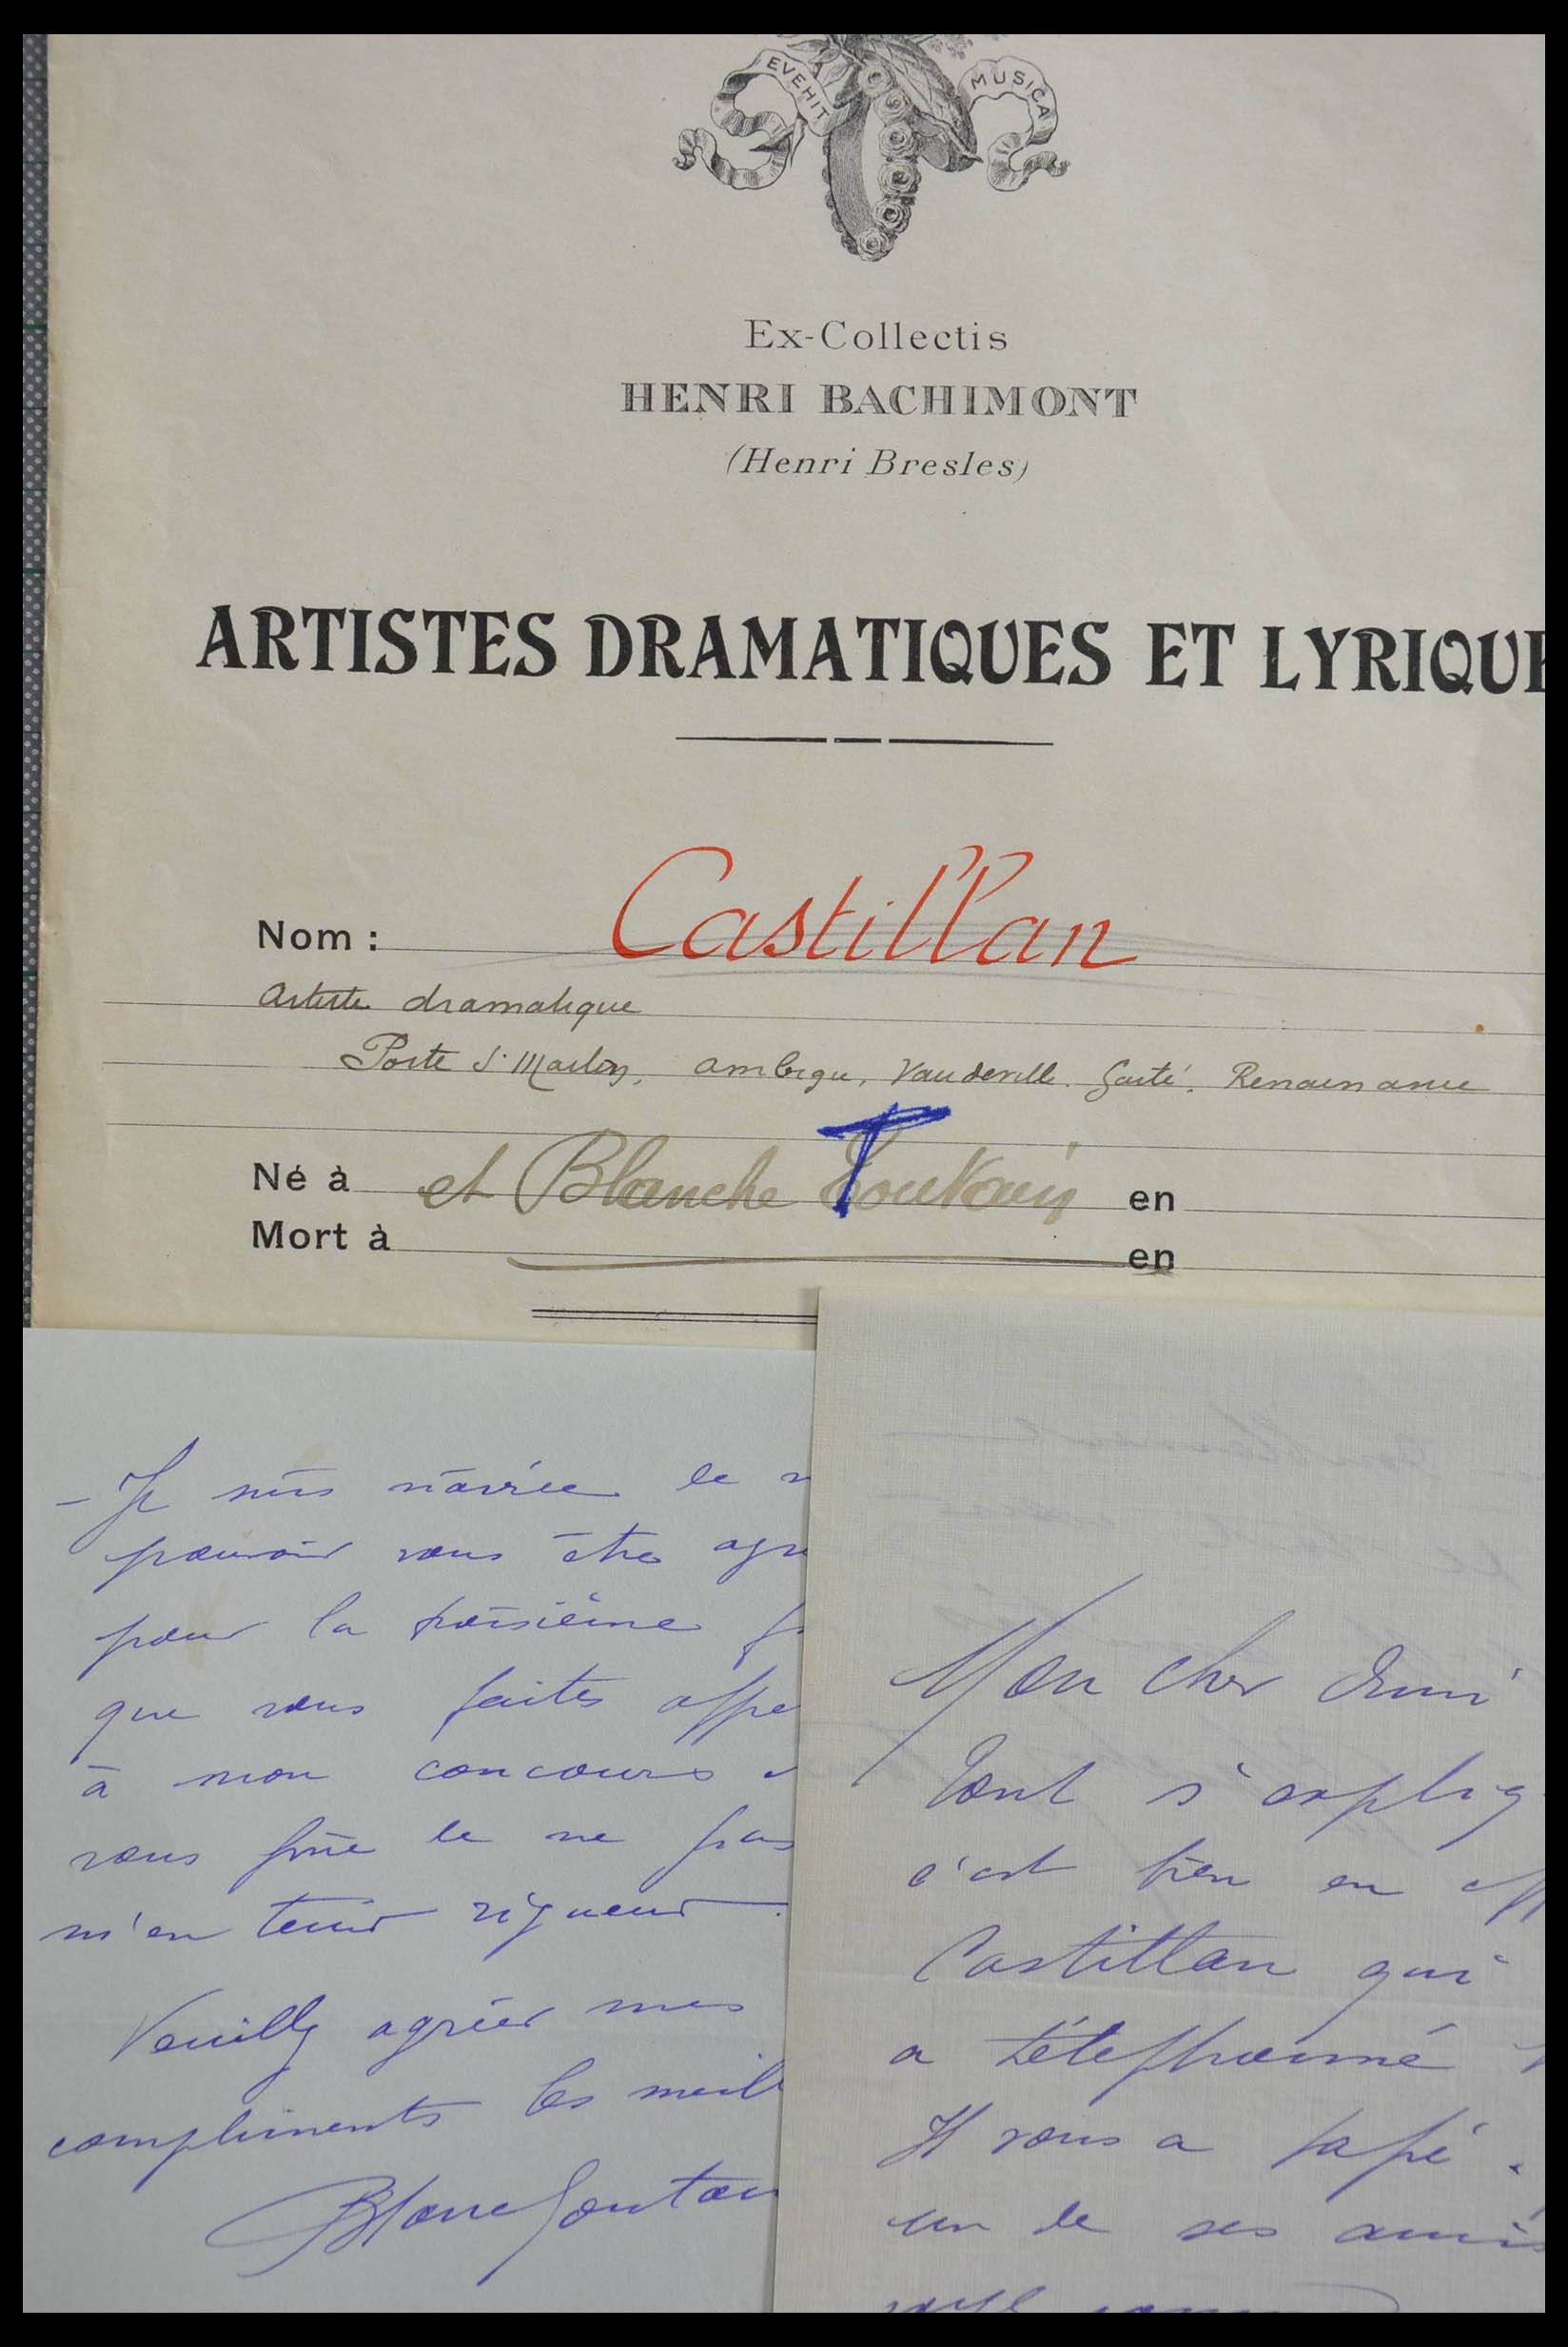 EVEHIT MUSICA
Ex-Collectis
HENRI BACHIMONT
(Henri Bresles)
ARTISTES DRAMATIQUES ET LYRIQUE
Nom : Castillan
Artiste dramatique
Porte St Martin, Ambigu, Vaudeville. Gaité. Renaissance
Né à et Blanche Toutain en
Mort à en
- Je suis navrée de n
pouvoir vous être agr
pour la troisième f
que vous faites appe
à mon concours
vous prie de ne pas
m'en tenir rigueur.
Veuillez agréer mes
compliments les meill
Blanc Toutain
Mon cher Ami
Tout s'expliq
c'est bien en
Castillan qui
a téléphoné
Il vous a tapé.
un de ses amis